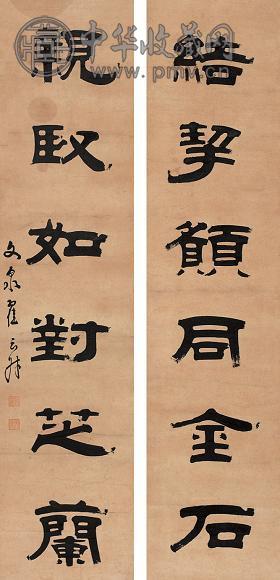 中华收藏网
www.pmv.cn
結契願同金石
取如對芝蘭
文泉翟云升